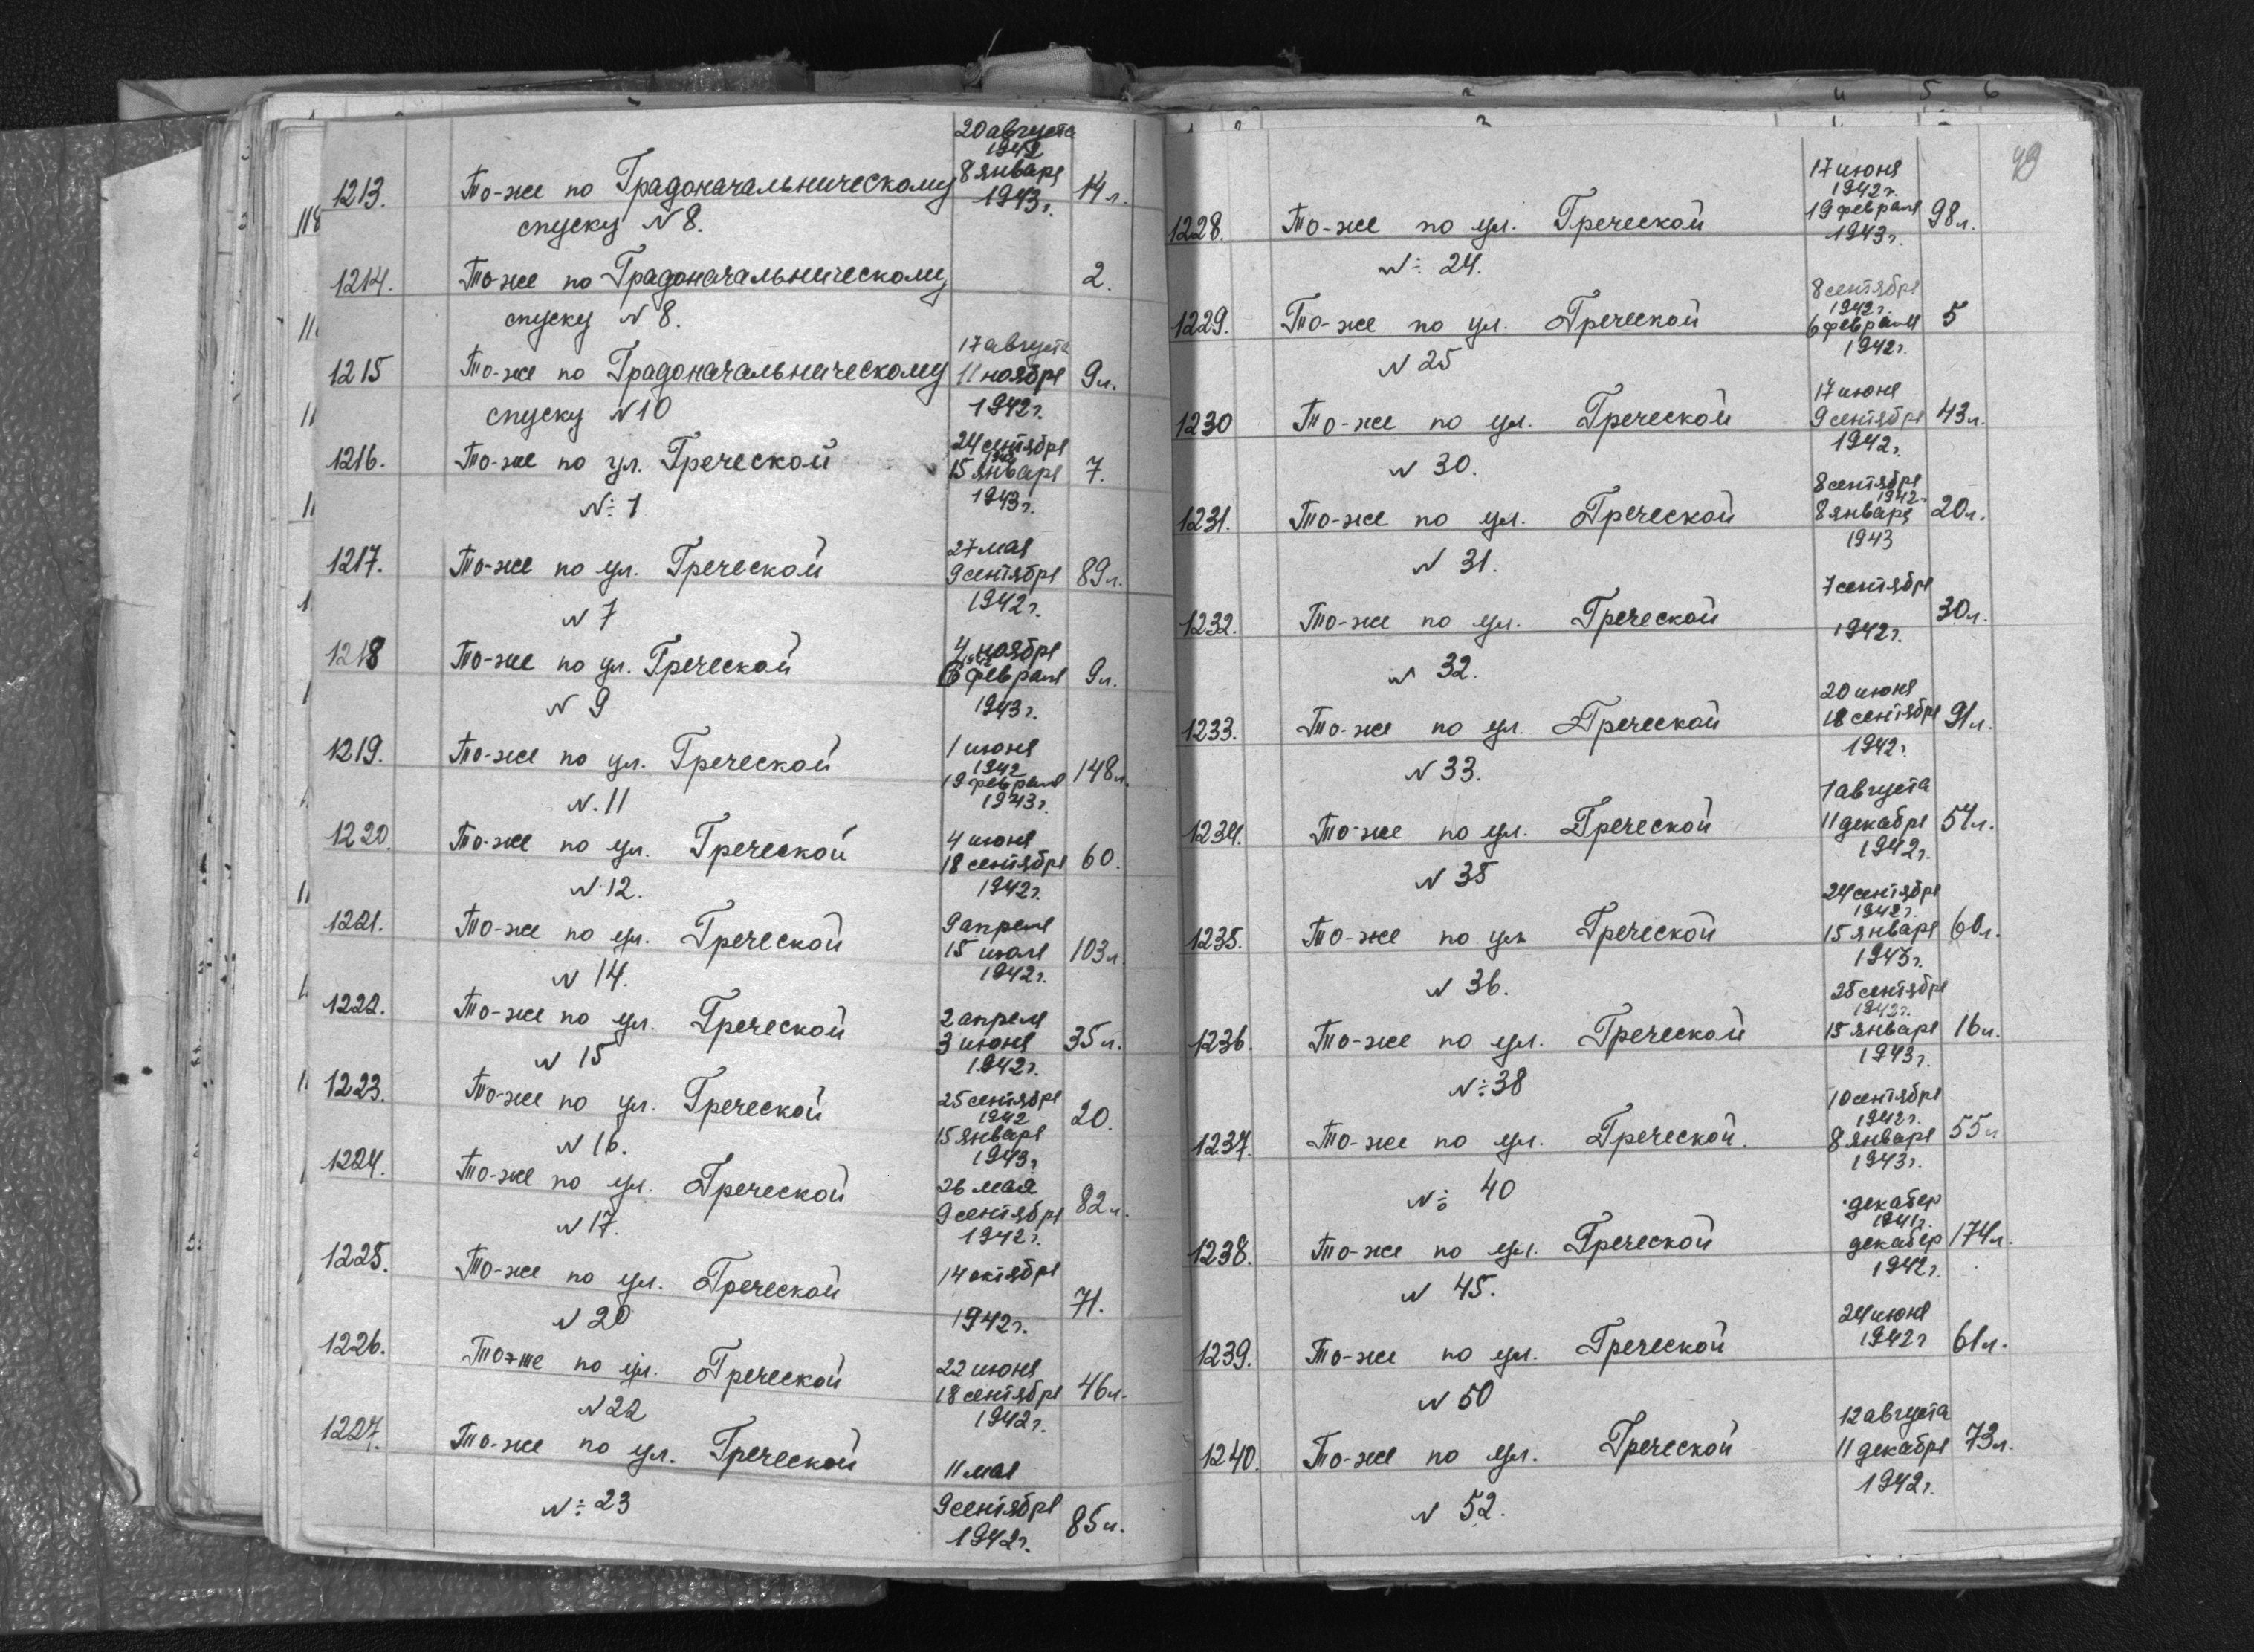 20 августа
1942
1213. То-же по Градоначальническому 8 января 14 л.
спуску N 8. 1943 г.
1214. То-же по Градоначальническому 2.
спуску N 8.
17 августа
1215 То-же по Градоначальническому 11 ноября 9 л.
спуску N 10 1942 г.
24 сентября
1216. То-же по ул. Греческой 15 января 7.
№ 1 1943 г.
27 мая
1217. То-же по ул. Греческой 9 сентября 89 л.
N 7 1942 г.
4 ноября
1218 То-же по ул. Греческой 6 февраля 9 л.
N 9 1943 г.
1 июня
1942
1219. То-же по ул. Греческой 19 февраля 148 л.
N. 11 1943 г.
4 июня
1220. То-же по ул. Греческой 18 сентября 60.
N 12. 1942 г.
9 апреля
1221. То-же по ул. Греческой 15 июля 103 л.
N 14. 1942 г.
2 апреля
1222. То-же по ул. Греческой 3 июня 35 л.
N 15 1942 г.
25 сентября
1942
1223. То-же по ул. Греческой 15 января 20.
N 16. 1943 г.
26 мая
1224. То-же по ул. Греческой 9 сентября 82 л.
N 17. 1942 г.
14 октября
1225. То-же по ул. Греческой 71.
N 20 1942 г.
22 июня
1226. То-же по ул. Греческой 18 сентября 46 л.
N 22 1942 г.
11 мая
1227. То-же по ул. Греческой 9 сентября 85 л.
№ 23 1942 г.
4 5 6
49
17 июня
1942 г.
1228. То-же по ул. Греческой 19 февраля 98 л.
№ 24. 1943 г.
8 сентября
1942 г.
1229. То-же по ул. Греческой 6 февраля 5
N 25 1942 г.
17 июня
1230 То-же по ул. Греческой 9 сентября 43 л.
N 30. 1942 г.
8 сентября
1942 г.
1231. То-же по ул. Греческой 8 января 20 л.
N 31. 1943
7 сентября
1232. То-же по ул. Греческой 1942 г. 30 л.
N 32.
20 июня
1233. То-же по ул. Греческой 18 сентября 91 л.
N 33. 1942 г.
1 августа
1234. То-же по ул. Греческой 11 декабря 54 л.
N 35 1942 г.
24 сентября
1942 г.
1235. То-же по ул. Греческой 15 января 60 л.
N 36. 1943 г.
25 сентября
1942 г.
1236. То-же по ул. Греческой 15 января 16 л.
№ 38 1943 г.
10 сентября
1942 г.
1237. То-же по ул. Греческой. 8 января 55 л
№ 40 1943 г.
декабрь
1941 г.
1238. То-же по ул. Греческой декабрь 174 л.
N 45. 1942 г.
24 июня
1239. То-же по ул. Греческой 1942 г 61 л.
N 50
12 августа
1240. То-же по ул. Греческой 11 декабря 73 л.
N 52. 1942 г.